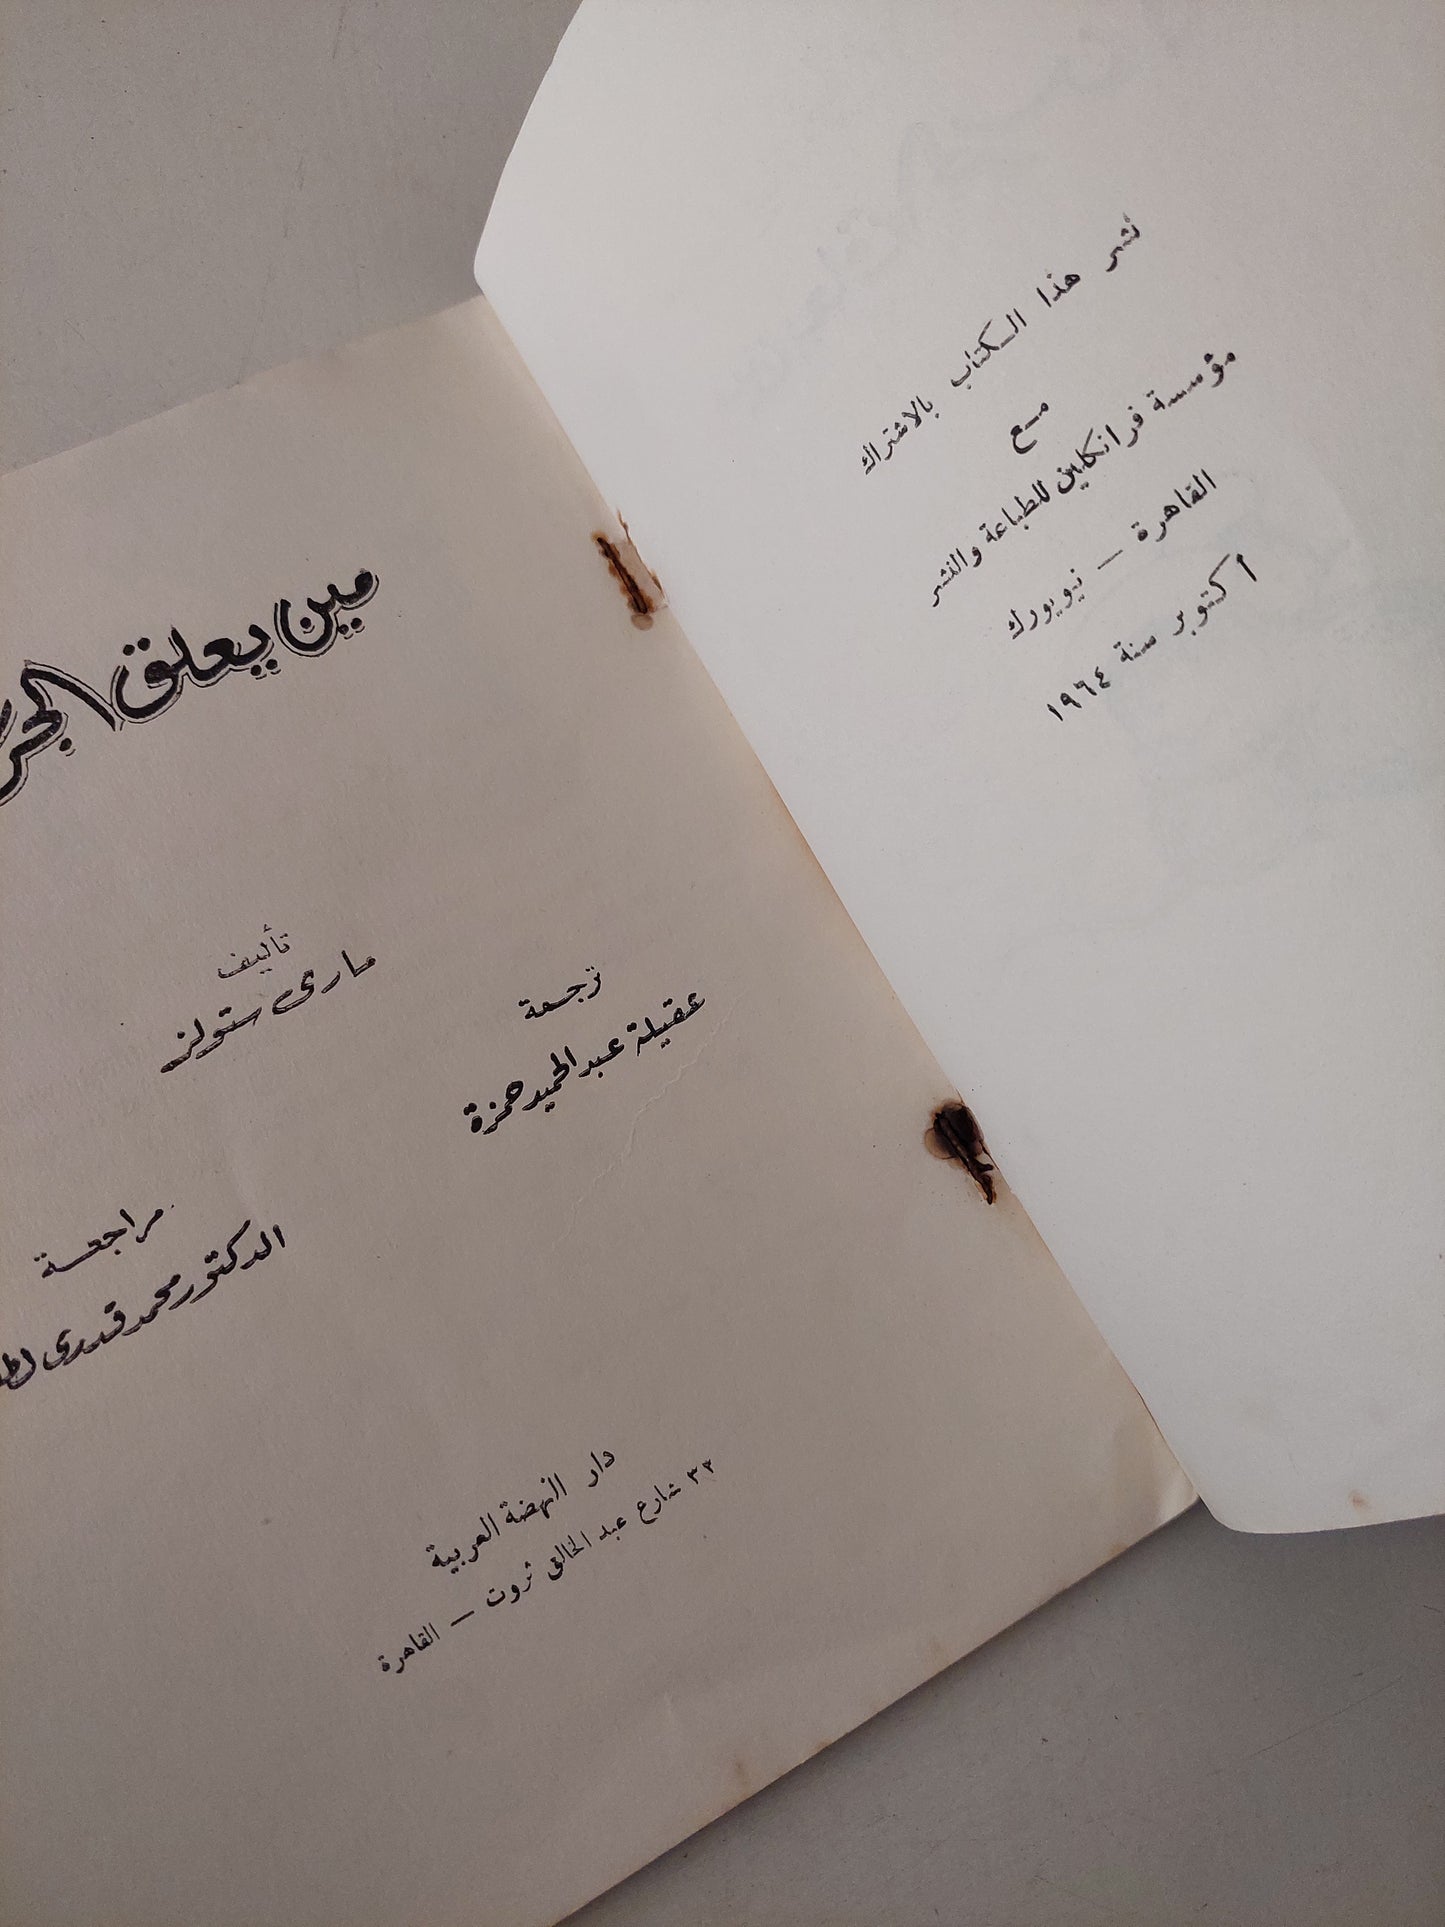 نشر هذا الكتاب بالاشتراك
مع
مؤسسة فرانكلين للطباعة والنشر
القاهرة — نيويورك
أكتوبر سنة ١٩٦٤
مين يعلق
تأليف
مارى ستولز
ترجمة
عقيلة عبد الحميد حمزة
مراجعة
الدكتور محمد قدرى
دار النهضة العربية
٣٢ شارع عبد الخالق ثروت — القاهرة